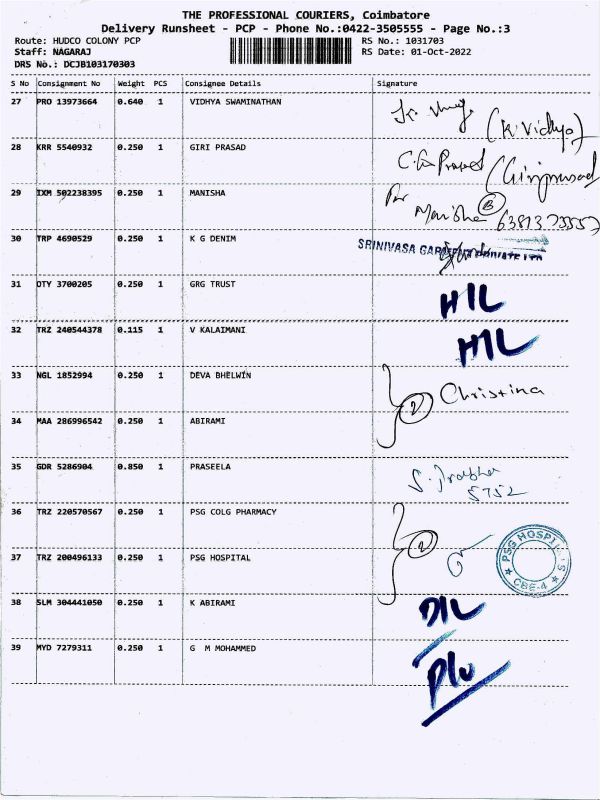 THE PROFESSIONAL COURIERS, Coimbatore
Delivery Runsheet - PCP - Phone No.:0422-3505555 - Page No.:3
Route: HUDCO COLONY PCP
RS No.: 1031703
Staff: NAGARAJ
RS Date: 01-Oct-2022
DRS No.: DCJB103170303
S No Consignment No Weight PCS Consignee Details Signature
27 PRO 13973664 0.640 1 VIDHYA SWAMINATHAN (K. Vidhya)
28 KRR 5540932 0.250 1 GIRI PRASAD (Giriprasad
29 IXM 502238395 0.250 1 MANISHA Manisha
30 TRP 4690529 0.250 1 K G DENIM SRINIVASA GARMENT PRIVATE LTD
31 OTY 3700205 0.250 1 GRG TRUST H1L
32 TRZ 240544378 0.115 1 V KALAIMANI H1L
33 NGL 1852994 0.250 1 DEVA BHELWIN 2 Christina
34 MAA 286996542 0.250 1 ABIRAMI
35 GDR 5286904 0.850 1 PRASEELA 5752
36 TRZ 220570567 0.250 1 PSG COLG PHARMACY 2
37 TRZ 200496133 0.250 1 PSG HOSPITAL PSG HOSPITALS CBE-4
38 SLM 304441050 0.250 1 K ABIRAMI D1L
39 MYD 7279311 0.250 1 G M MOHAMMED